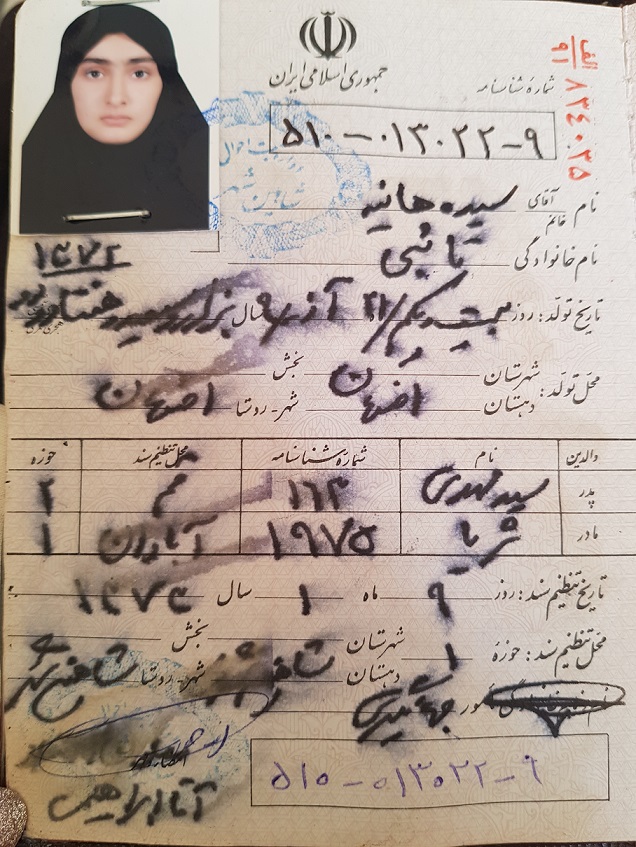 جمهوری اسلامی ایران
الف
۹۱
۸۳۴۰۳۵
شمارهٔ شناسنامه
۵۱۰-۰۱۳۰۲۲-۹
نام آقای خانم سیده هانیه
نام خانوادگی تائبی
۱۳۷۲
تاریخ تولد: روز بیست و یکم/۲۱ آذر/۹ سال
محل تولد: شهرستان اصفهان بخش
دهستان شهر-روستا اصفهان
والدین نام شمارهٔ شناسنامه محل تنظیم سند حوزه
پدر سید مهدی ۱۶۳ قم ۲
مادر ثریا ۱۹۷۵ آبادان ۱
تاریخ تنظیم سند: روز ۹ ماه ۱ سال ۱۳۷۳
محل تنظیم سند: حوزهٔ ۱ شهرستان شاهین شهر بخش
دهستان شهر-روستا شاهین شهر
جهانگیری
۵۱۰-۰۱۳۰۲۲-۹